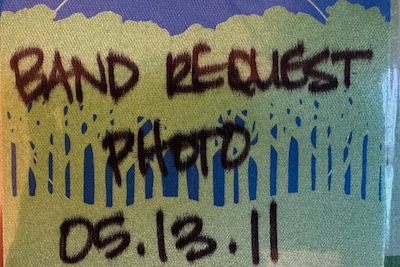 BAND REQUEST
PHOTO
05.13.11